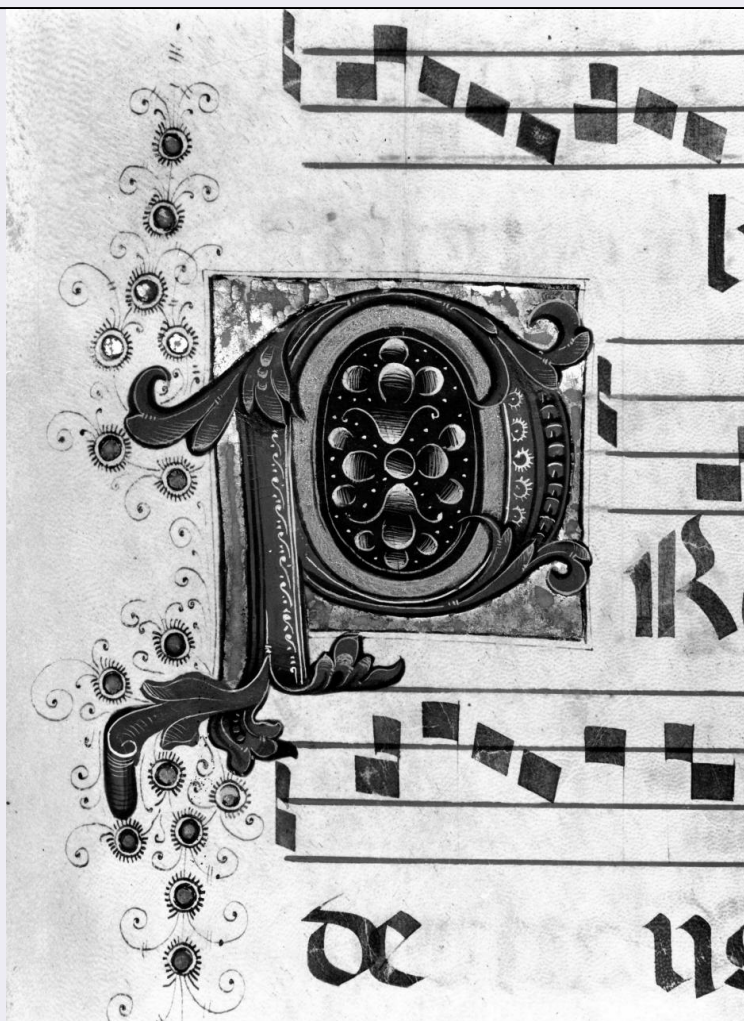 P R
de us